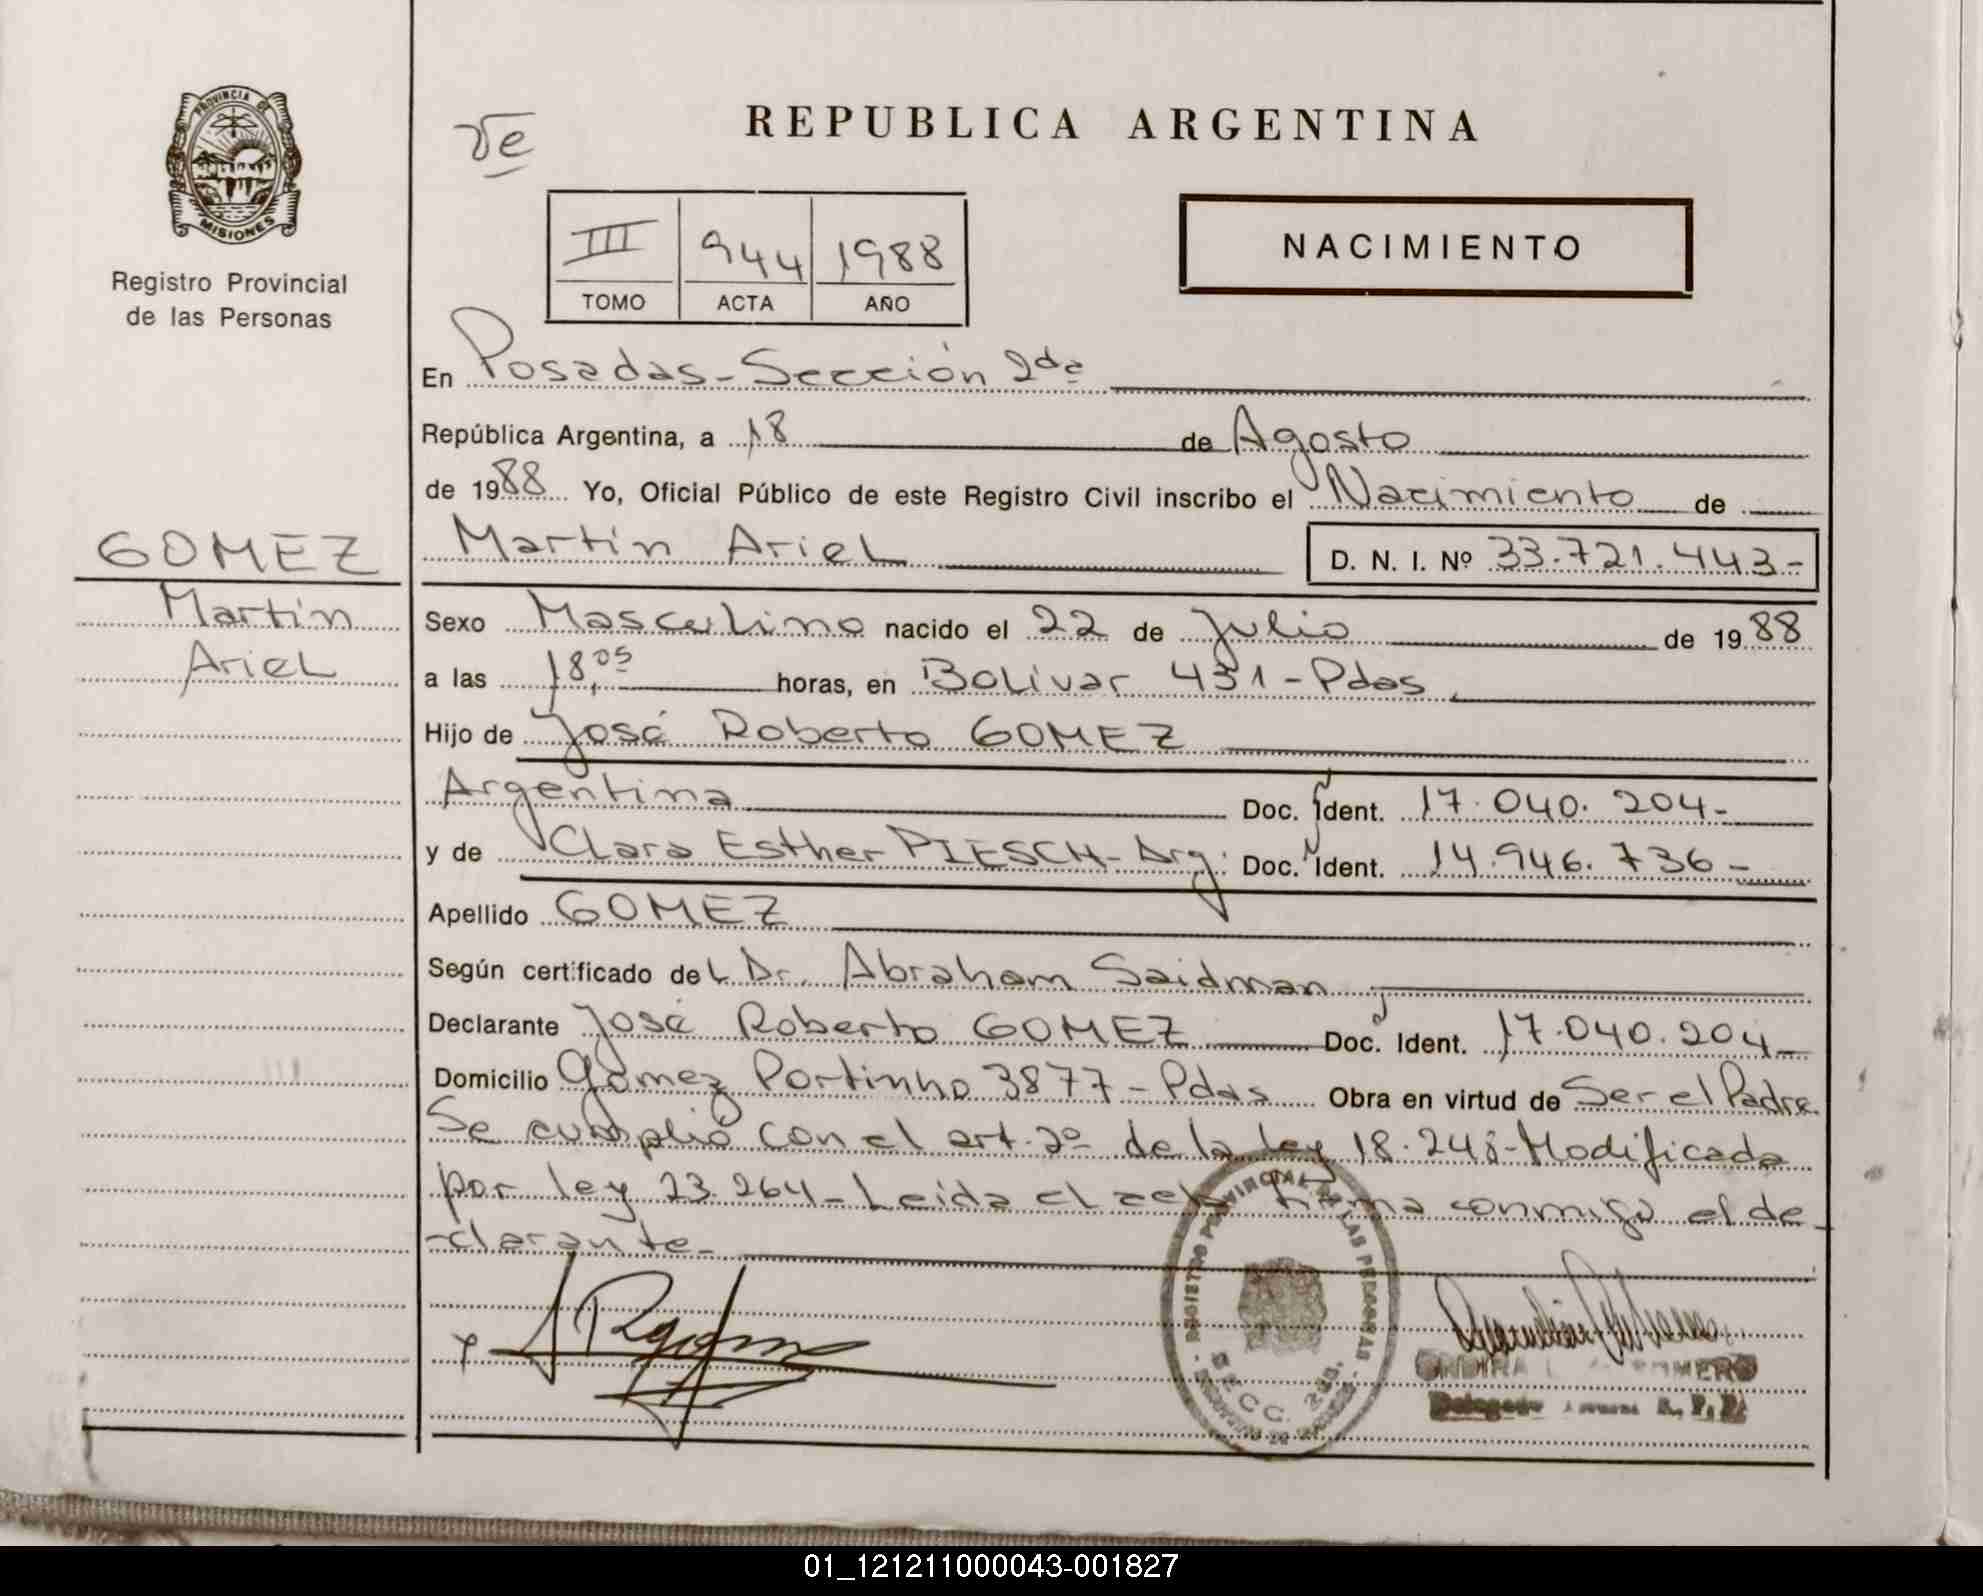 PROVINCIA DE
MISIONES
Registro Provincial
de las Personas
GOMEZ
Martín
Ariel
REPUBLICA ARGENTINA
III 944 1988
TOMO ACTA AÑO
NACIMIENTO
En Posadas - Sección 2da
República Argentina, a 18 de Agosto
de 1988 Yo, Oficial Público de este Registro Civil inscribo el Nacimiento de
Martín Ariel D. N. I. Nº 33.721.443-
Sexo Masculino nacido el 22 de Julio de 1988
a las 18,05 horas, en Bolívar 431 - Pdas
Hijo de José Roberto GOMEZ
Argentina Doc. Ident. 17.040.204-
y de Clara Esther PIESCH - Arg. Doc. Ident. 14.946.736-
Apellido GOMEZ
Según certificado del Dr. Abraham Saidman
Declarante José Roberto GOMEZ Doc. Ident. 17.040.204-
Domicilio Gómez Portinho 3877 - Pdas Obra en virtud de Ser el Padre
Se cumplió con el art. 2º de la ley 18.248 - Modificada
por ley 23.264 - Leída el acta firma conmigo el de-
-clarante-
REGISTRO PROVINCIAL DE LAS PERSONAS
SECC. 2da.
ROMERO
Delegado R. P. P.
01_121211000043-001827